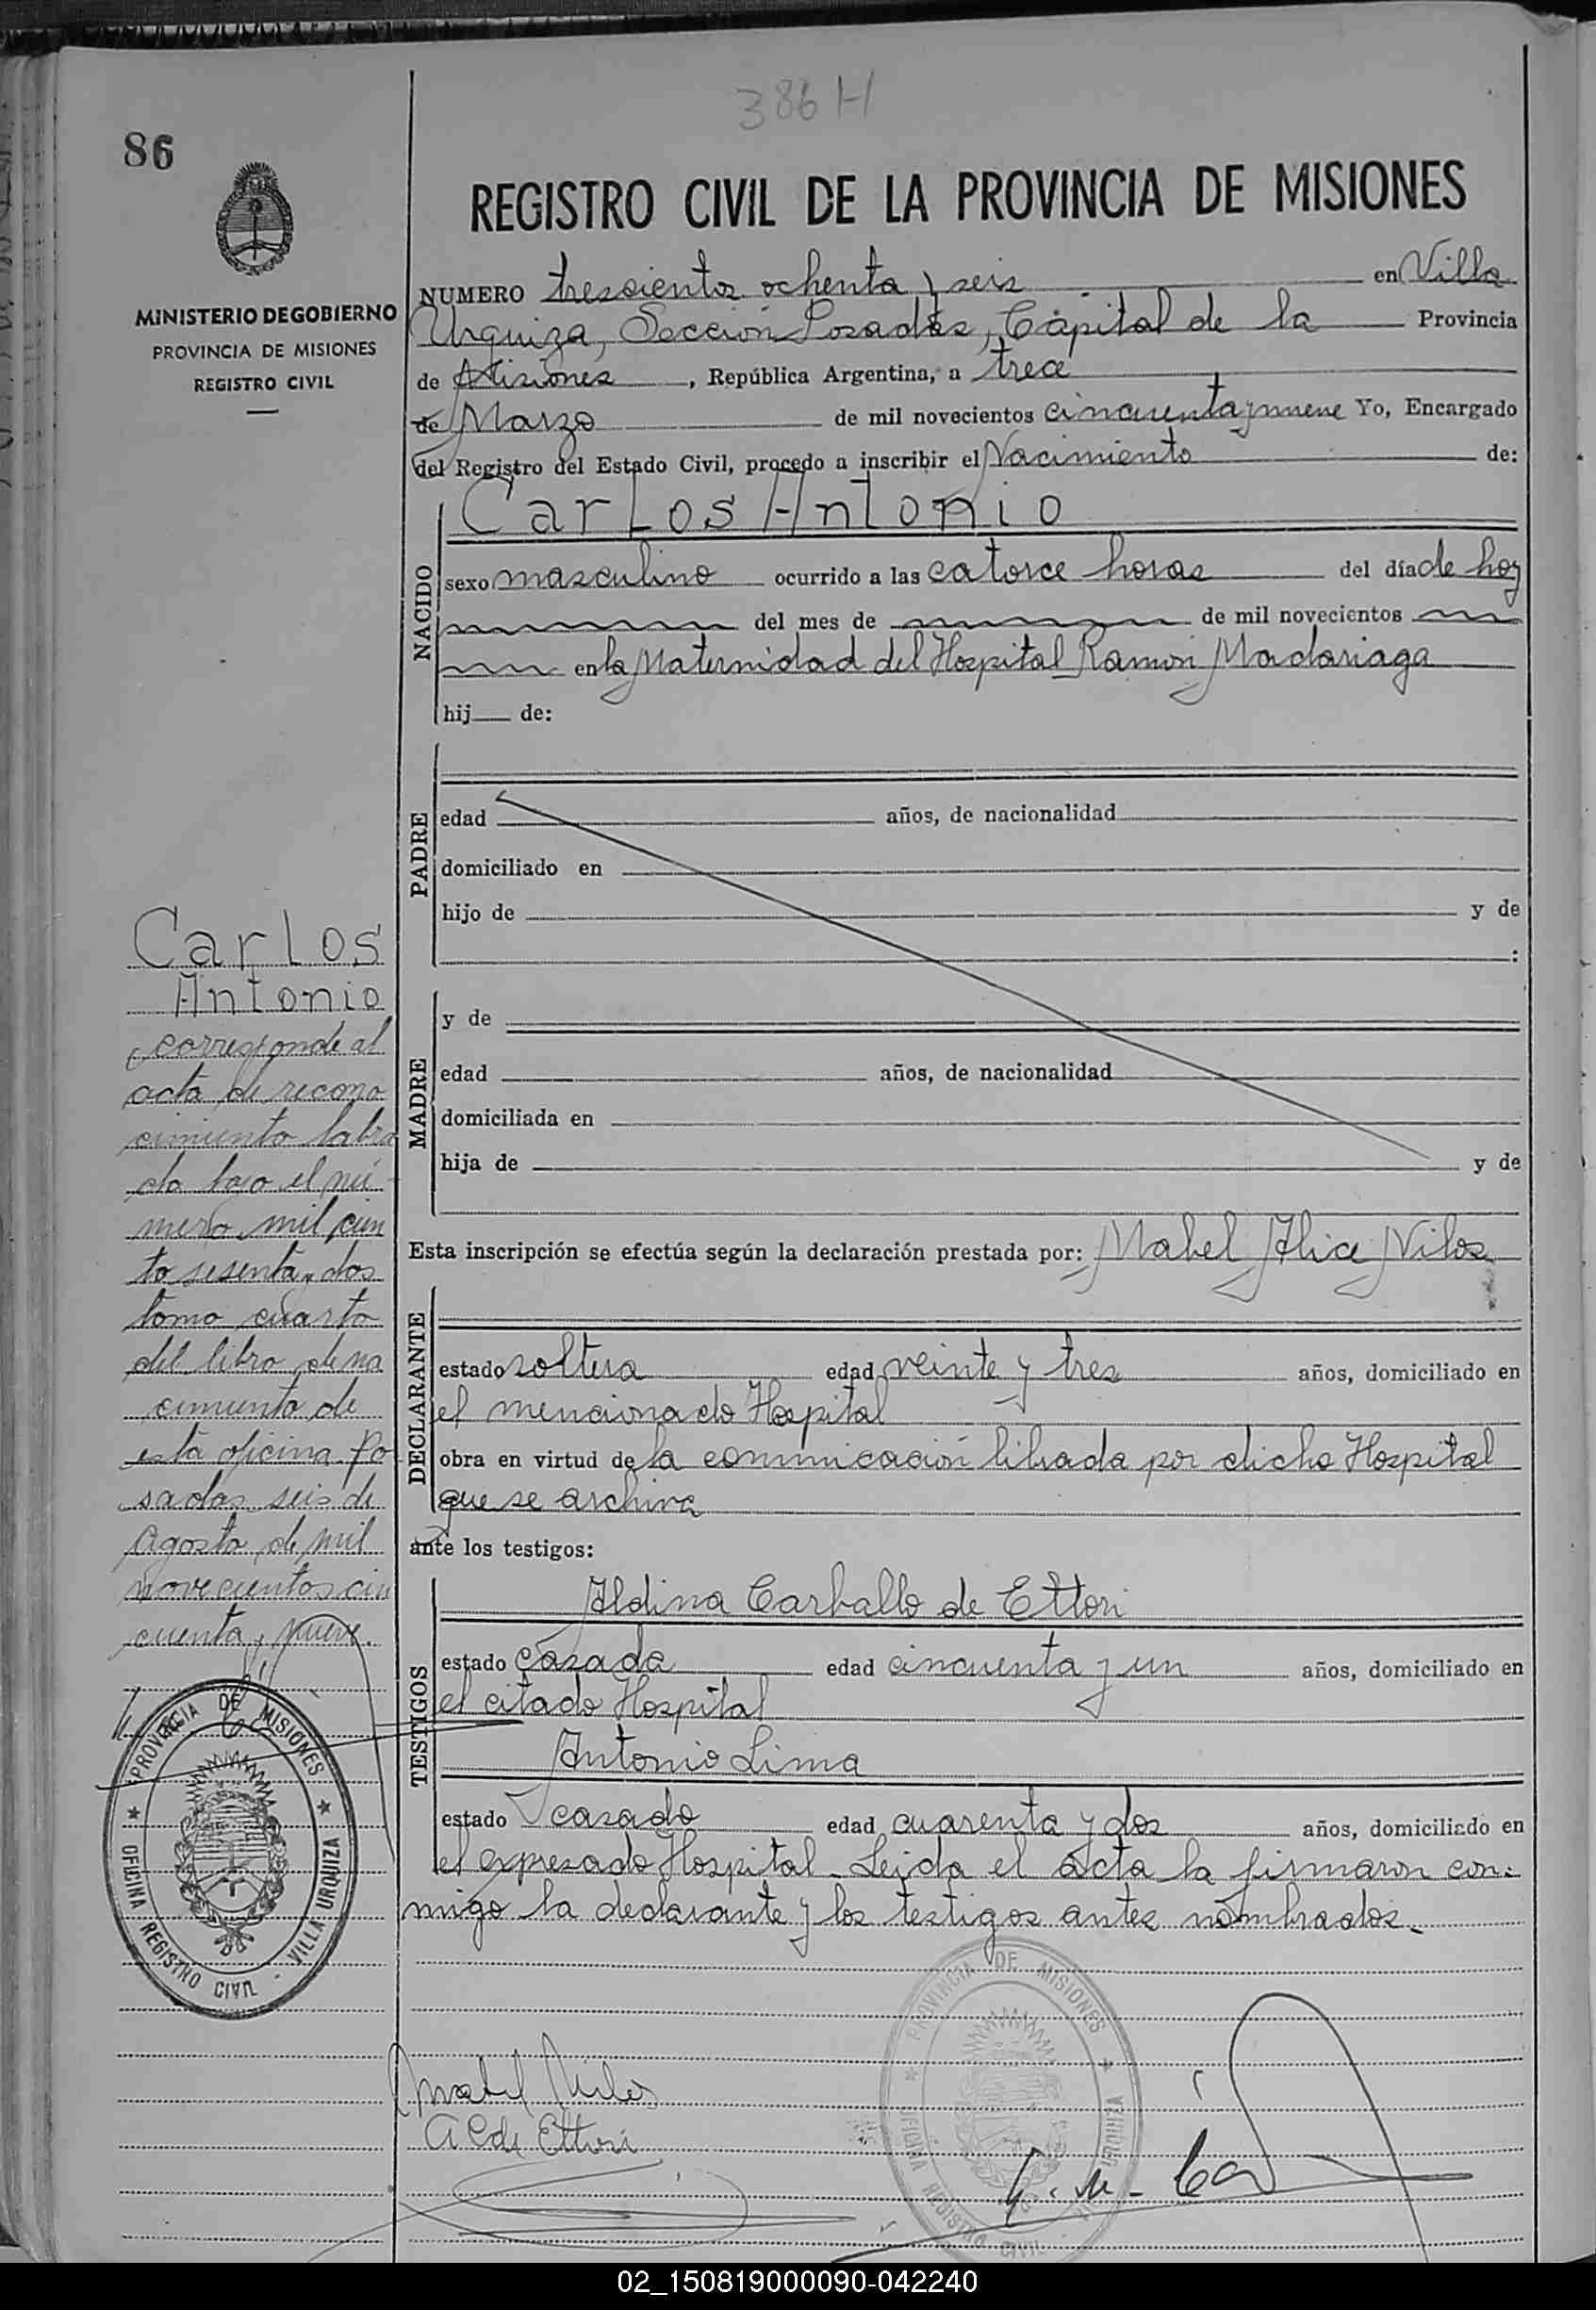 386 H
86
REGISTRO CIVIL DE LA PROVINCIA DE MISIONES
MINISTERIO DE GOBIERNO
PROVINCIA DE MISIONES
REGISTRO CIVIL
NUMERO trescientos ochenta y seis en Villa
Urquiza, Sección Posadas, Capital de la Provincia
de Misiones, República Argentina, a trece
de Marzo de mil novecientos cincuenta y nueve Yo, Encargado
del Registro del Estado Civil, procedo a inscribir el Nacimiento de:
NACIDO
Carlos Antonio
sexo masculino ocurrido a las catorce horas del día de hoy
del mes de de mil novecientos
en la Maternidad del Hospital Ramón Madariaga
hij de:
PADRE
edad años, de nacionalidad
domiciliado en
hijo de y de
:
MADRE
y de
edad años, de nacionalidad
domiciliada en
hija de y de
Esta inscripción se efectúa según la declaración prestada por: Mabel Alice Niles
DECLARANTE
estado soltera edad veinte y tres años, domiciliado en
el mencionado Hospital
obra en virtud de la comunicación librada por dicho Hospital
que se archiva
ante los testigos:
TESTIGOS
Aldina Carballo de Ettori
estado casada edad cincuenta y un años, domiciliado en
el citado Hospital
Antonio Lima
estado casado edad cuarenta y dos años, domiciliado en
el expresado Hospital. Leída el acta la firmaron con-
migo la declarante y los testigos antes nombrados.
Carlos
Antonio
corresponde al
acta de recono
cimiento labra
do bajo el nú
mero mil cien
to sesenta y dos
tomo cuarto
del libro de na
cimiento de
esta oficina. Po
sadas seis de
Agosto de mil
novecientos cin
cuenta y nueve.
PROVINCIA DE MISIONES
OFICINA REGISTRO CIVIL - VILLA URQUIZA
Mabel Niles
A C de Ettori
PROVINCIA DE MISIONES
OFICINA REGISTRO CIVIL URQUIZA
02_150819000090-042240